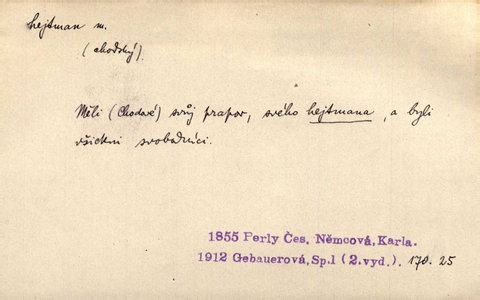 hejtman m.
(chodský).
Měli (Chodové) svůj prapor, svého hejtmana, a byli
všickni svobodníci.
1855 Perly Čes. Němcová, Karla.
1912 Gebauerová, Sp.1 (2.vyd.). 170. 25